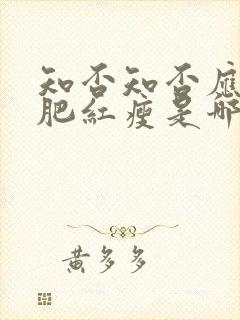 知否知否應
肥紅瘦是哪
黃多多